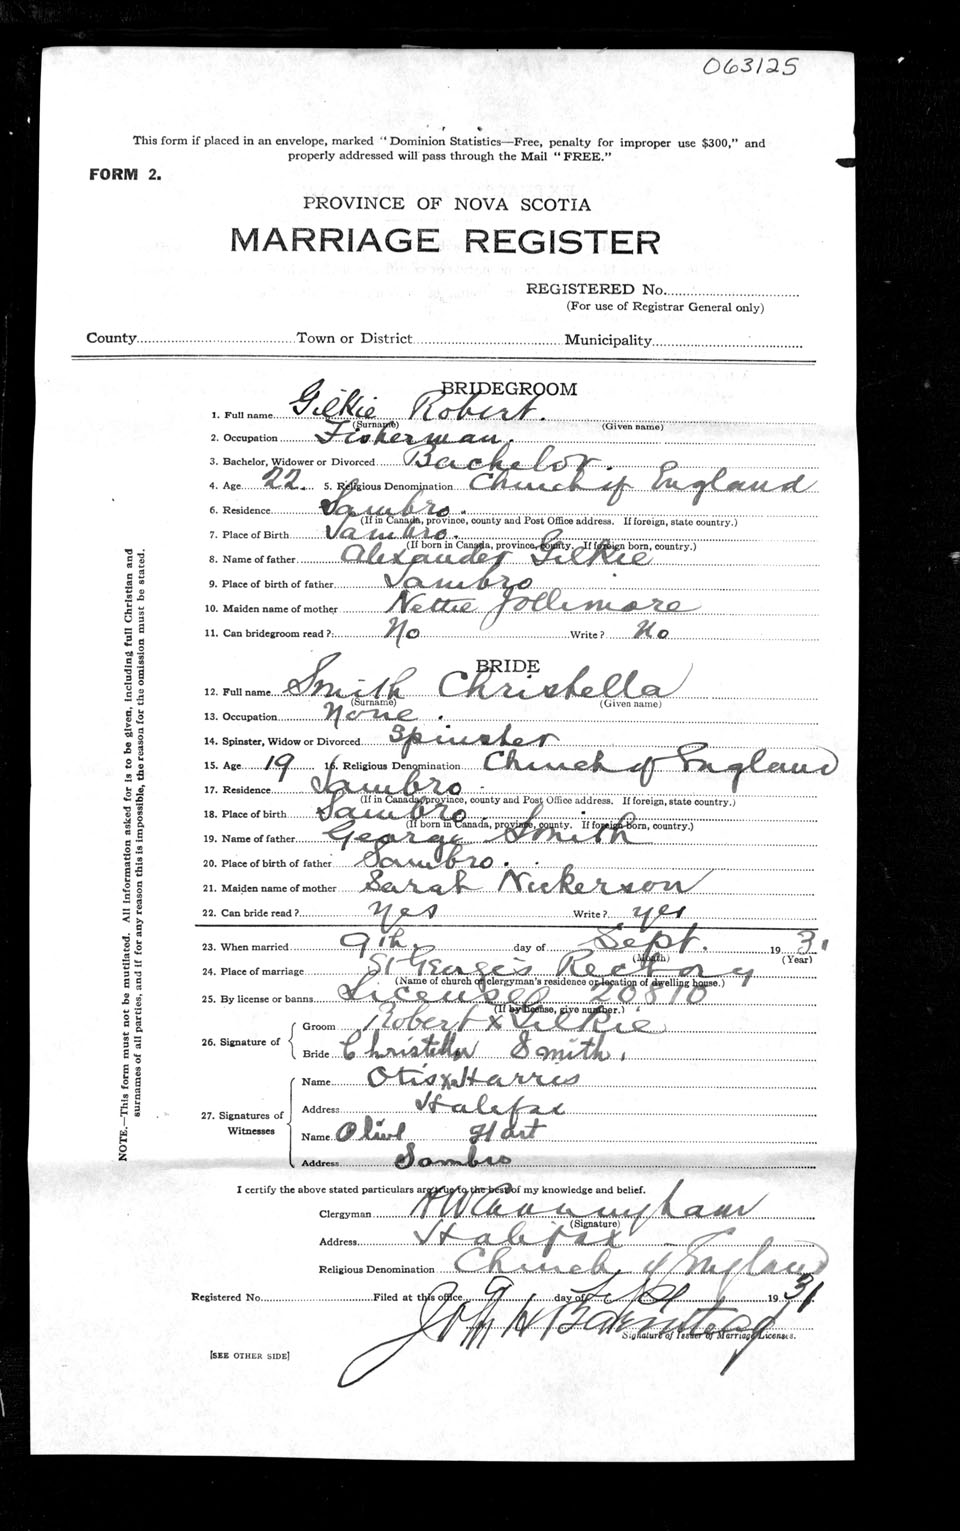 063125
This form if placed in an envelope, marked "Dominion Statistics—Free, penalty for improper use $300," and
properly addressed will pass through the Mail "FREE."
FORM 2.
PROVINCE OF NOVA SCOTIA
MARRIAGE REGISTER
REGISTERED No.
(For use of Registrar General only)
County Town or District Municipality
BRIDEGROOM
1. Full name Gilkie Robert.
(Surname) (Given name)
2. Occupation Fisherman.
3. Bachelor, Widower or Divorced Bachelor.
4. Age 22. 5. Religious Denomination Church of England
6. Residence Sambro.
(If in Canada, province, county and Post Office address. If foreign, state country.)
7. Place of Birth Sambro.
(If born in Canada, province, county. If foreign born, country.)
8. Name of father Alexander Gilkie
9. Place of birth of father Sambro
10. Maiden name of mother Nettie Jollimore
11. Can bridegroom read? No Write? No
BRIDE
12. Full name Smith Christella
(Surname) (Given name)
13. Occupation None.
14. Spinster, Widow or Divorced Spinster
15. Age 19 16. Religious Denomination Church of England
17. Residence Sambro
(If in Canada, province, county and Post Office address. If foreign, state country.)
18. Place of birth Sambro.
(If born in Canada, province, county. If foreign born, country.)
19. Name of father George Smith
20. Place of birth of father Sambro.
21. Maiden name of mother Sarah Nickerson
22. Can bride read? Yes Write? yes
23. When married 9th. day of Sept. 1931
(Month) (Year)
24. Place of marriage St George's Rectory
(Name of church or clergyman's residence or location of dwelling house.)
25. By license or banns License 20810
(If by license, give number.)
26. Signature of
Groom Robert x Gilkie
Bride Christella Smith.
27. Signatures of Witnesses
Name Otis x Harris
Address Halifax
Name Olive Hart
Address Sambro
I certify the above stated particulars are true to the best of my knowledge and belief.
Clergyman H W Cunningham
(Signature)
Address Halifax
Religious Denomination Church of England
Registered No. Filed at this office 9 day of Sept 1931
Signature of Issuer of Marriage Licenses.
[SEE OTHER SIDE]
NOTE.—This form must not be mutilated. All information asked for is to be given, including full Christian and
surnames of all parties, and if for any reason this is impossible, the reason for the omission must be stated.